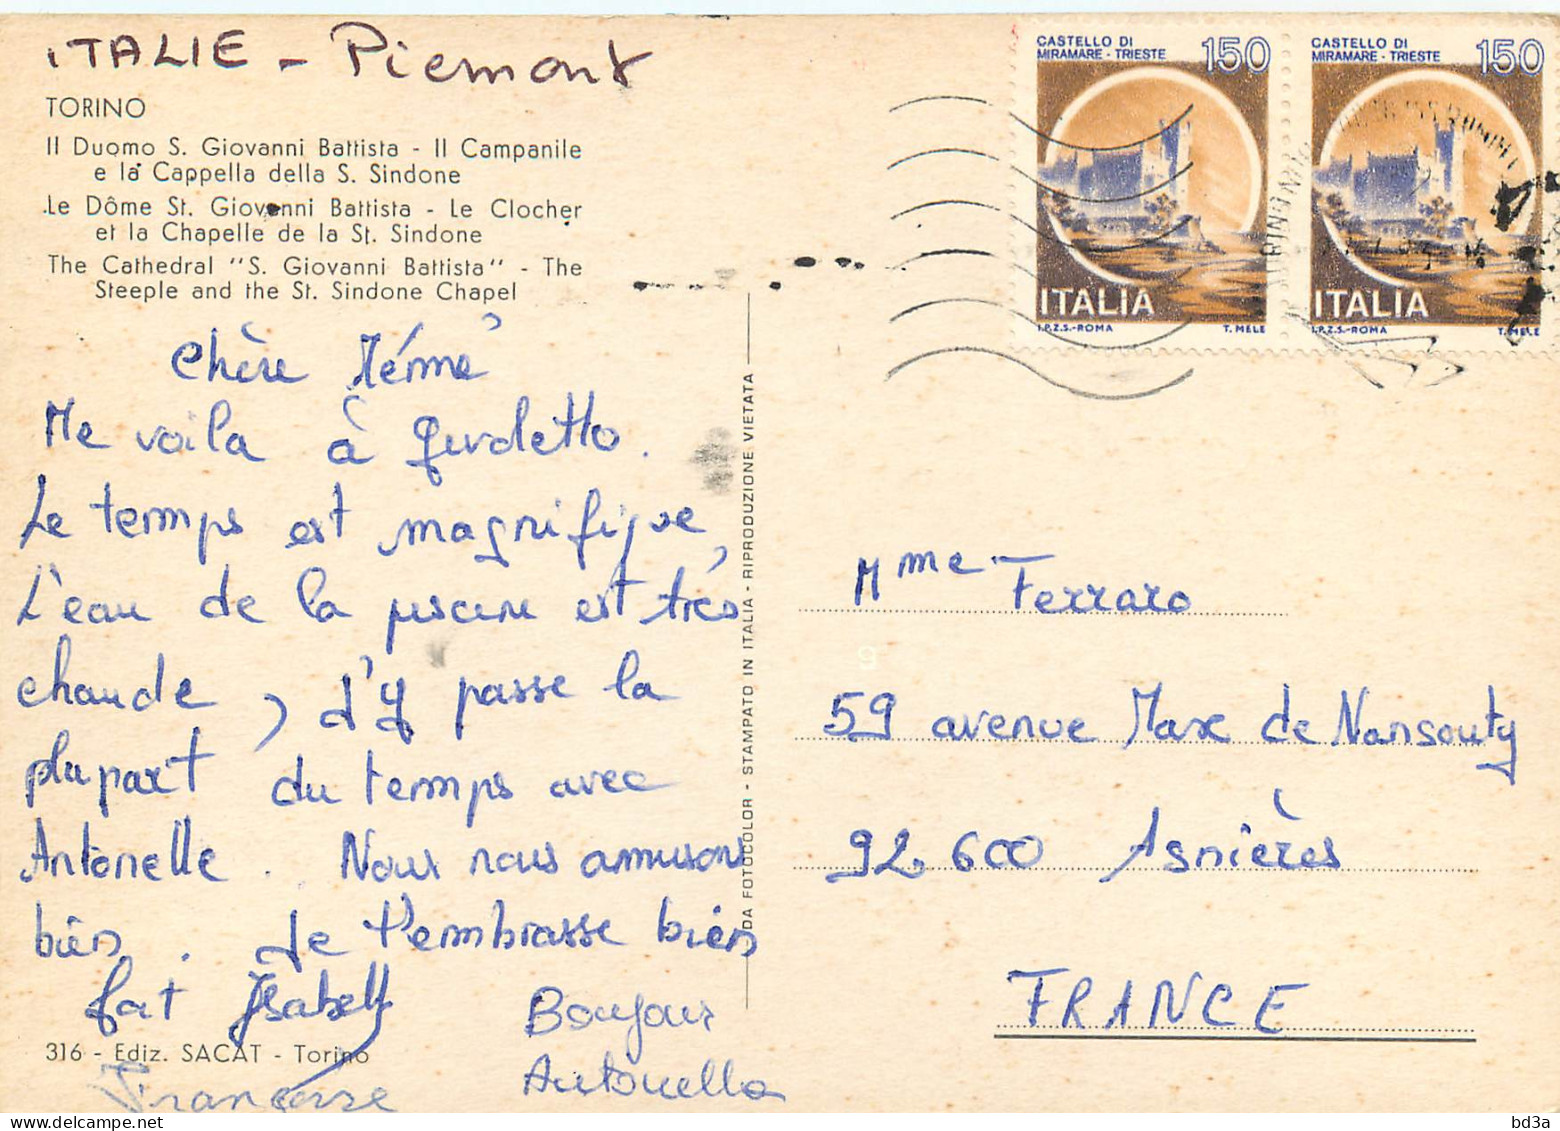 ITALIE - Piemont
TORINO
Il Duomo S. Giovanni Battista - Il Campanile
e la Cappella della S. Sindone
Le Dôme St. Giovanni Battista - Le Clocher
et la Chapelle de la St. Sindone
The Cathedral "S. Giovanni Battista" - The
Steeple and the St. Sindone Chapel
CASTELLO DI
MIRAMARE - TRIESTE 150
ITALIA
I.P.Z.S.-ROMA T. MELE
CASTELLO DI
MIRAMARE - TRIESTE 150
ITALIA
I.P.Z.S.-ROMA T. MELE
Chère Mémé
Me voila à
Le temps est magnifique,
L'eau de la piscine est très
chaude, J'y passe la
plupart du temps avec
Antonelle. Nous nous amusons
bien. Je t'embrasse bien
fort Isabelle
Bonjour
Antonella
Françoise
316 - Ediz. SACAT - Torino
DA FOTOCOLOR - STAMPATO IN ITALIA - RIPRODUZIONE VIETATA
Mme Ferraro
59 avenue Max de Nansouty
92600 Asnières
FRANCE
bd3a